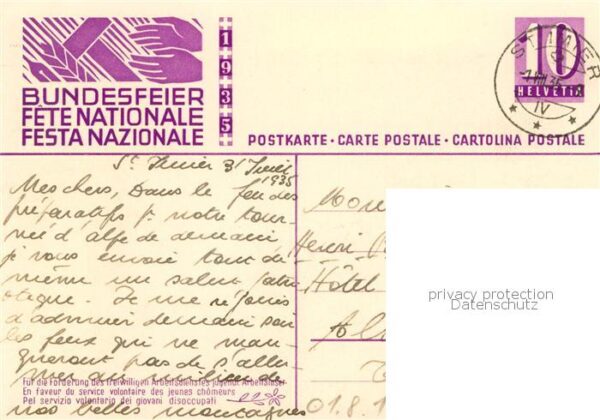 BUNDESFEIER
FÊTE NATIONALE
FESTA NAZIONALE
1935
10
HELVETIA
ST. IMIER
IV
POSTKARTE · CARTE POSTALE · CARTOLINA POSTALE
St. Imier 31 Juill 1935
Mes chers, Dans le feu des
préparatifs pr notre tour-
née d'alpe de demain
je vous envoie tout de
même un salut patri
otique. Je me réjouis
d'admirer demain soir
les feux qui ne man-
queront pas de s'allu-
mer au milieu de
nos belles montagnes
Für die Förderung des freiwilligen Arbeitsdienstes jugendl. Arbeitsloser
En faveur du service volontaire des jeunes chômeurs
Pel servizio volontario dei giovani disoccupati
Henri
Hôtel
01.8.1
privacy protection
Datenschutz